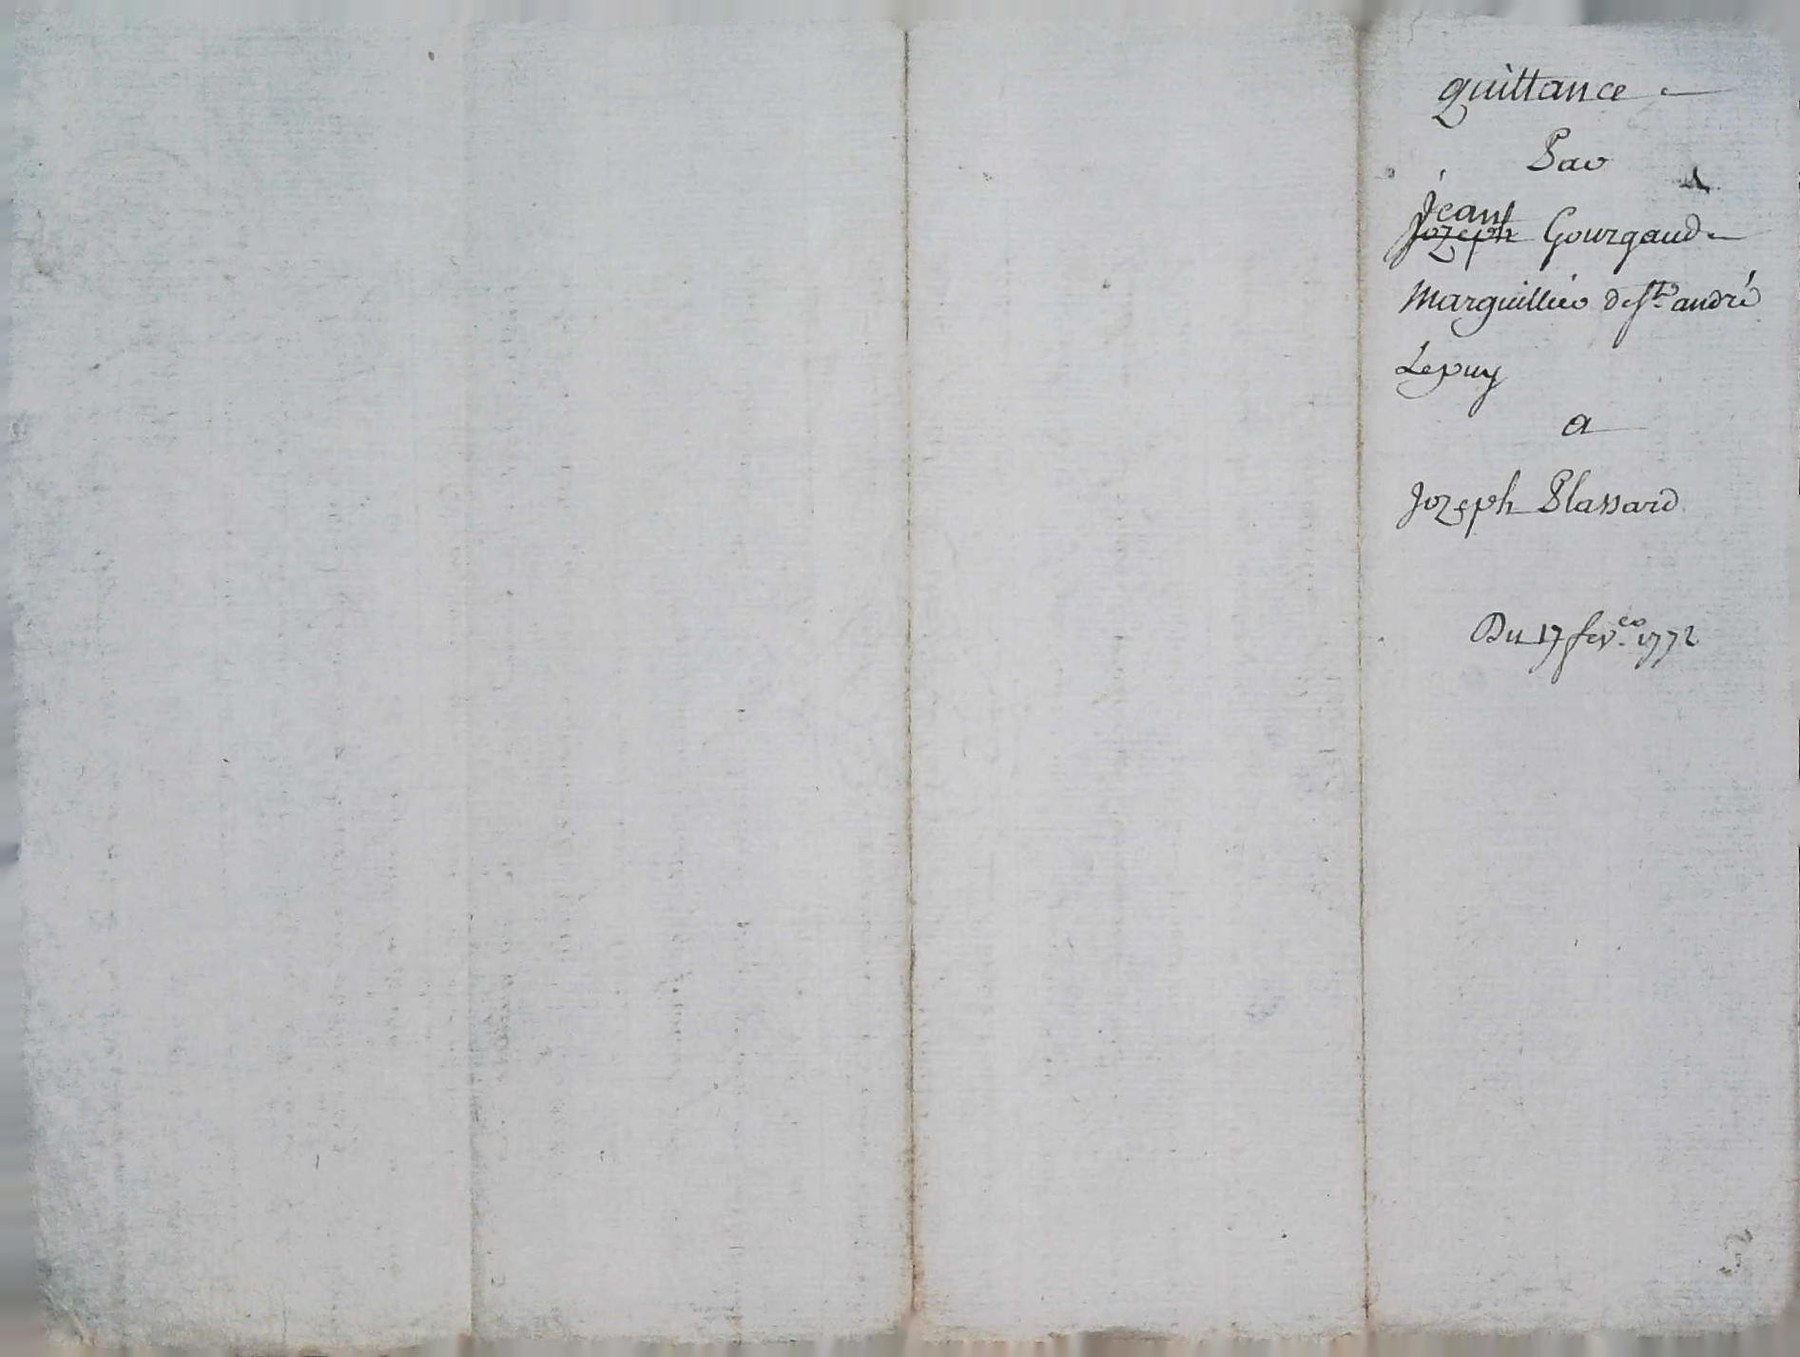 quittance
Par
jean
Jozeph Gourgaud
Marguillier de st andré
Lepuy
a
Jozeph Plassard
Du 17 fever 1772